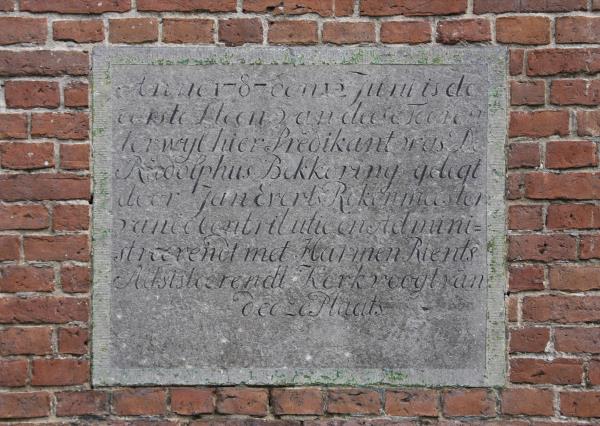 Anno 1787 den 12 Juni is de
eerste Steen van dese Toorn
terwyl hier Predikant was Do
Rudolphus Bekkering gelegt
door Jan Everts Rekenmeester
van de Contributie en Admini=
streerendt met Harmen Rients
Adsisteerendt Kerkvoogt van
deeze Plaats